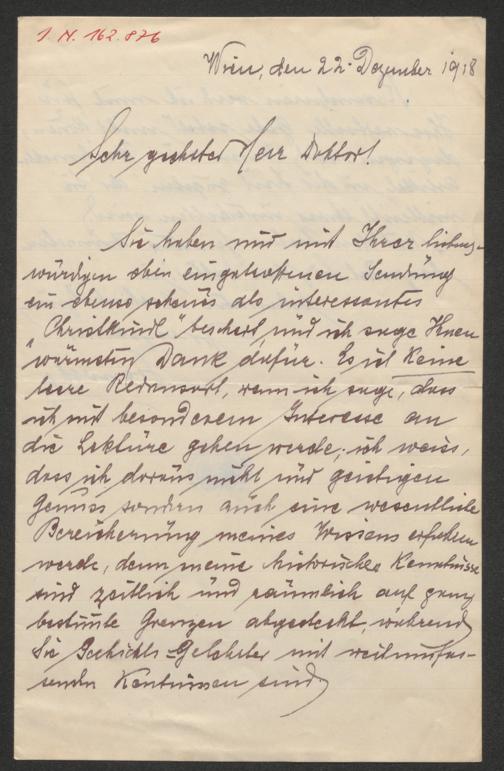 I. N. 162.876
Wien, den 22. Dezember 1918
Sehr geehrter Herr Doktor!
Sie haben mir mit Ihrer liebens-
würdigen eingetroffenen Sendung
ein ebenso schönes als interessantes
"Christkindl" beschert, und ich sage Ihnen
wärmsten Dank dafür. Es ist keine
leere Redensart, wenn ich sage, dass
ich mit besonderem Interesse an
die Lektüre gehen werde; ich weiss,
dass ich daraus nicht nur geistigen
Genuss sondern auch eine wesentliche
Bereicherung meines Wissens erfahren
werde, denn meine historischen Kenntnisse
sind zeitlich und räumlich auf ganz
bestimte Grenzen abgesteckt, während
Sie Geschichts-Gelehrter mit weitumfas-
senden Kentnissen sind